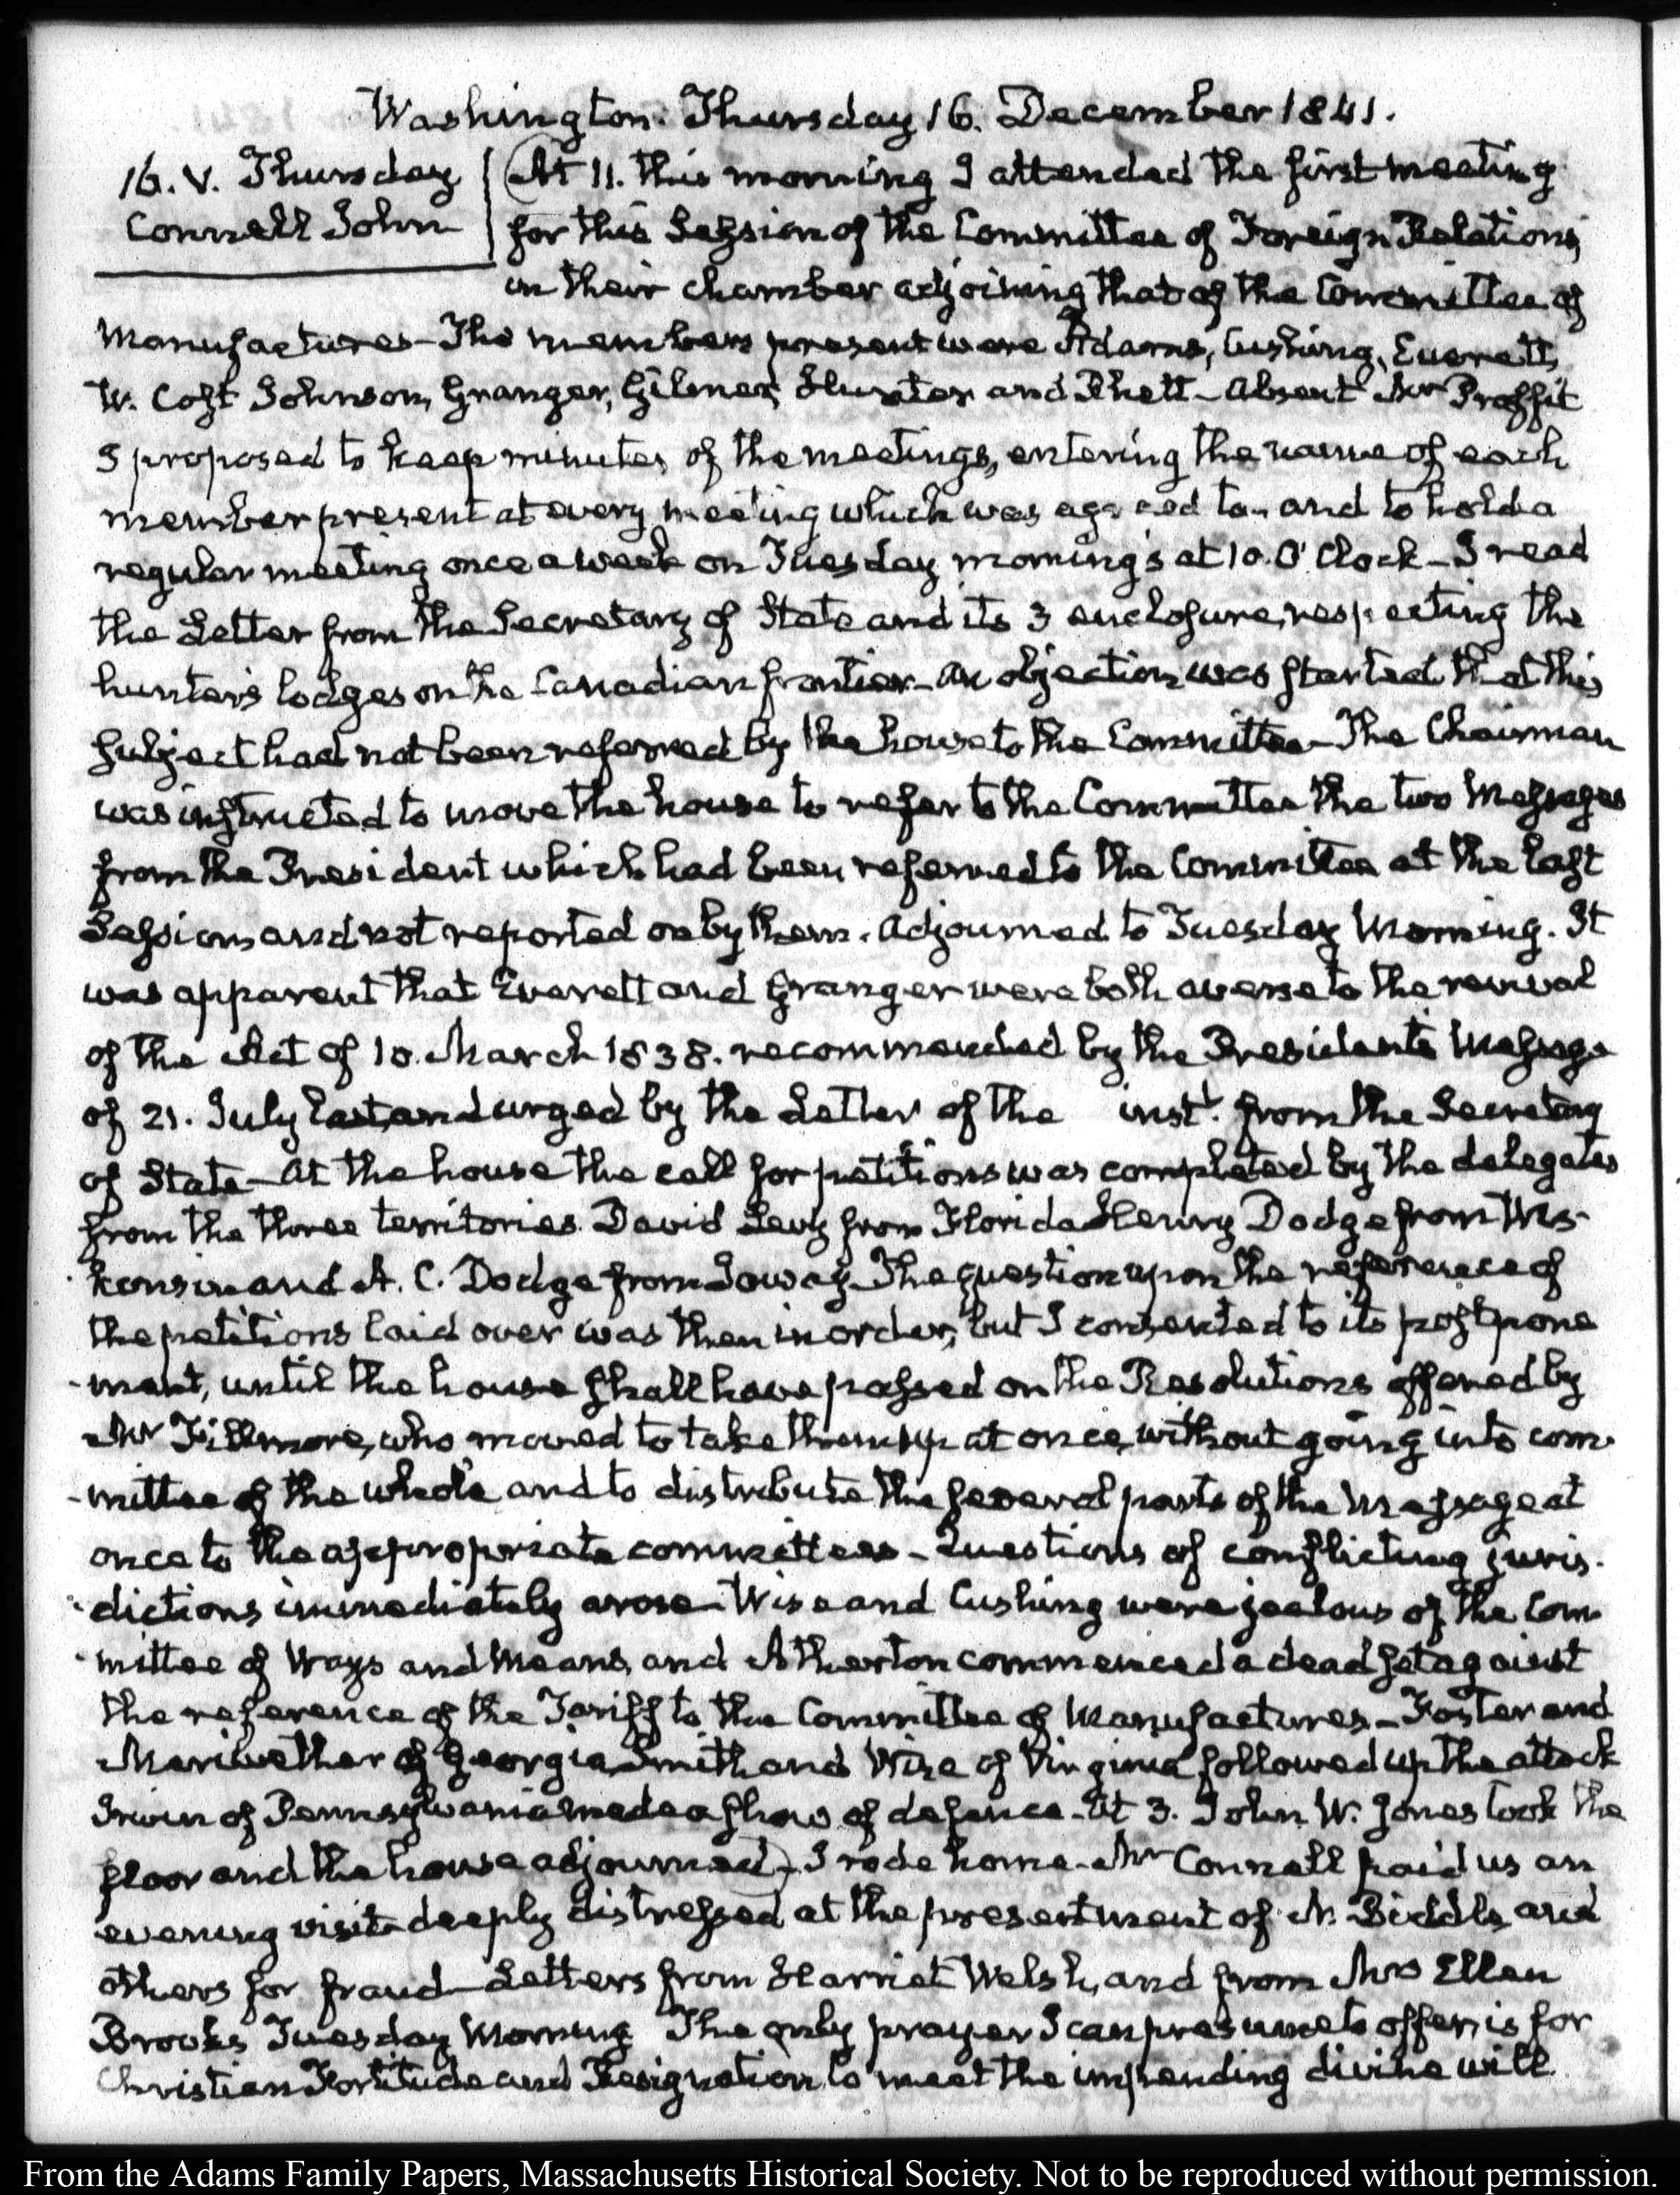 Washington. Thursday 16. December 1841.
16. V. Thursday
Connell John
At 11. this morning I attended the first meeting
for this Session of the Committee of Foreign Relations,
in their chamber adjoining that of the Committee of
Manufactures – The members present were Adams, Cushing, Everett,
W. Cost Johnson, Granger, Gilmer, Hunter and Rhett – Absent Mr Proffit
I proposed to keep minutes of the meetings, entering the name of each
member present at every meeting which was agreed to – and to hold a
regular meeting once a week on Tuesday morning's at 10. O'Clock – I read
the Letter from the Secretary of State and its 3 enclosure, respecting the
hunter's lodges on the Canadian frontier – An objection was started that this
subject had not been referred by the house to the Committee – The Chairman
was instructed to move the house to refer to the Committee the two Messages
from the President which had been referred to the Committee at the last
Session and not reported on by them. Adjourned to Tuesday Morning. It
was apparent that Everett and Granger were both averse to the revival
of the Act of 10. March 1838. recommended by the Presidents Message
of 21. July last, and urged by the Letter of the inst. from the Secretary
of State – At the house the call for petitions was completed by the delegates
from the three territories. David Levy from Florida Henry Dodge from Wis-
konsin and A. C. Dodge from Ioway – The question upon the reference of
the petitions laid over was then in order, but I consented to its postpone
-ment, until the house shall have passed on the Resolutions offered by
Mr Fillmore, who moved to take them up at once, without going into com-
-mittee of the whole and to distribute the several parts of the Message at
once to the appropriate committees – Questions of conflicting juris-
-dictions immediately arose – Wise and Cushing were jealous of the Com-
-mittee of Ways and Means, and Atherton commenced a dead set against
the reference of the Tariff to the Committee of Manufactures – Foster and
Meriwether of Georgia, Smith and Wise of Virginia followed up the attack
Irwin of Pennsylvania made a show of defence – At 3. John W. Jones took the
floor and the house adjourned) – I rode home – Mr Connell paid us an
evening visit – deeply distressed at the presentment of N. Biddle, and
others for fraud – Letters from Harriet Welsh, and from Mrs Ellen
Brooks Tuesday Morning The only prayer I can presume to offer, is for
Christian Fortitude and Resignation, to meet the impending divine will
From the Adams Family Papers, Massachusetts Historical Society. Not to be reproduced without permission.